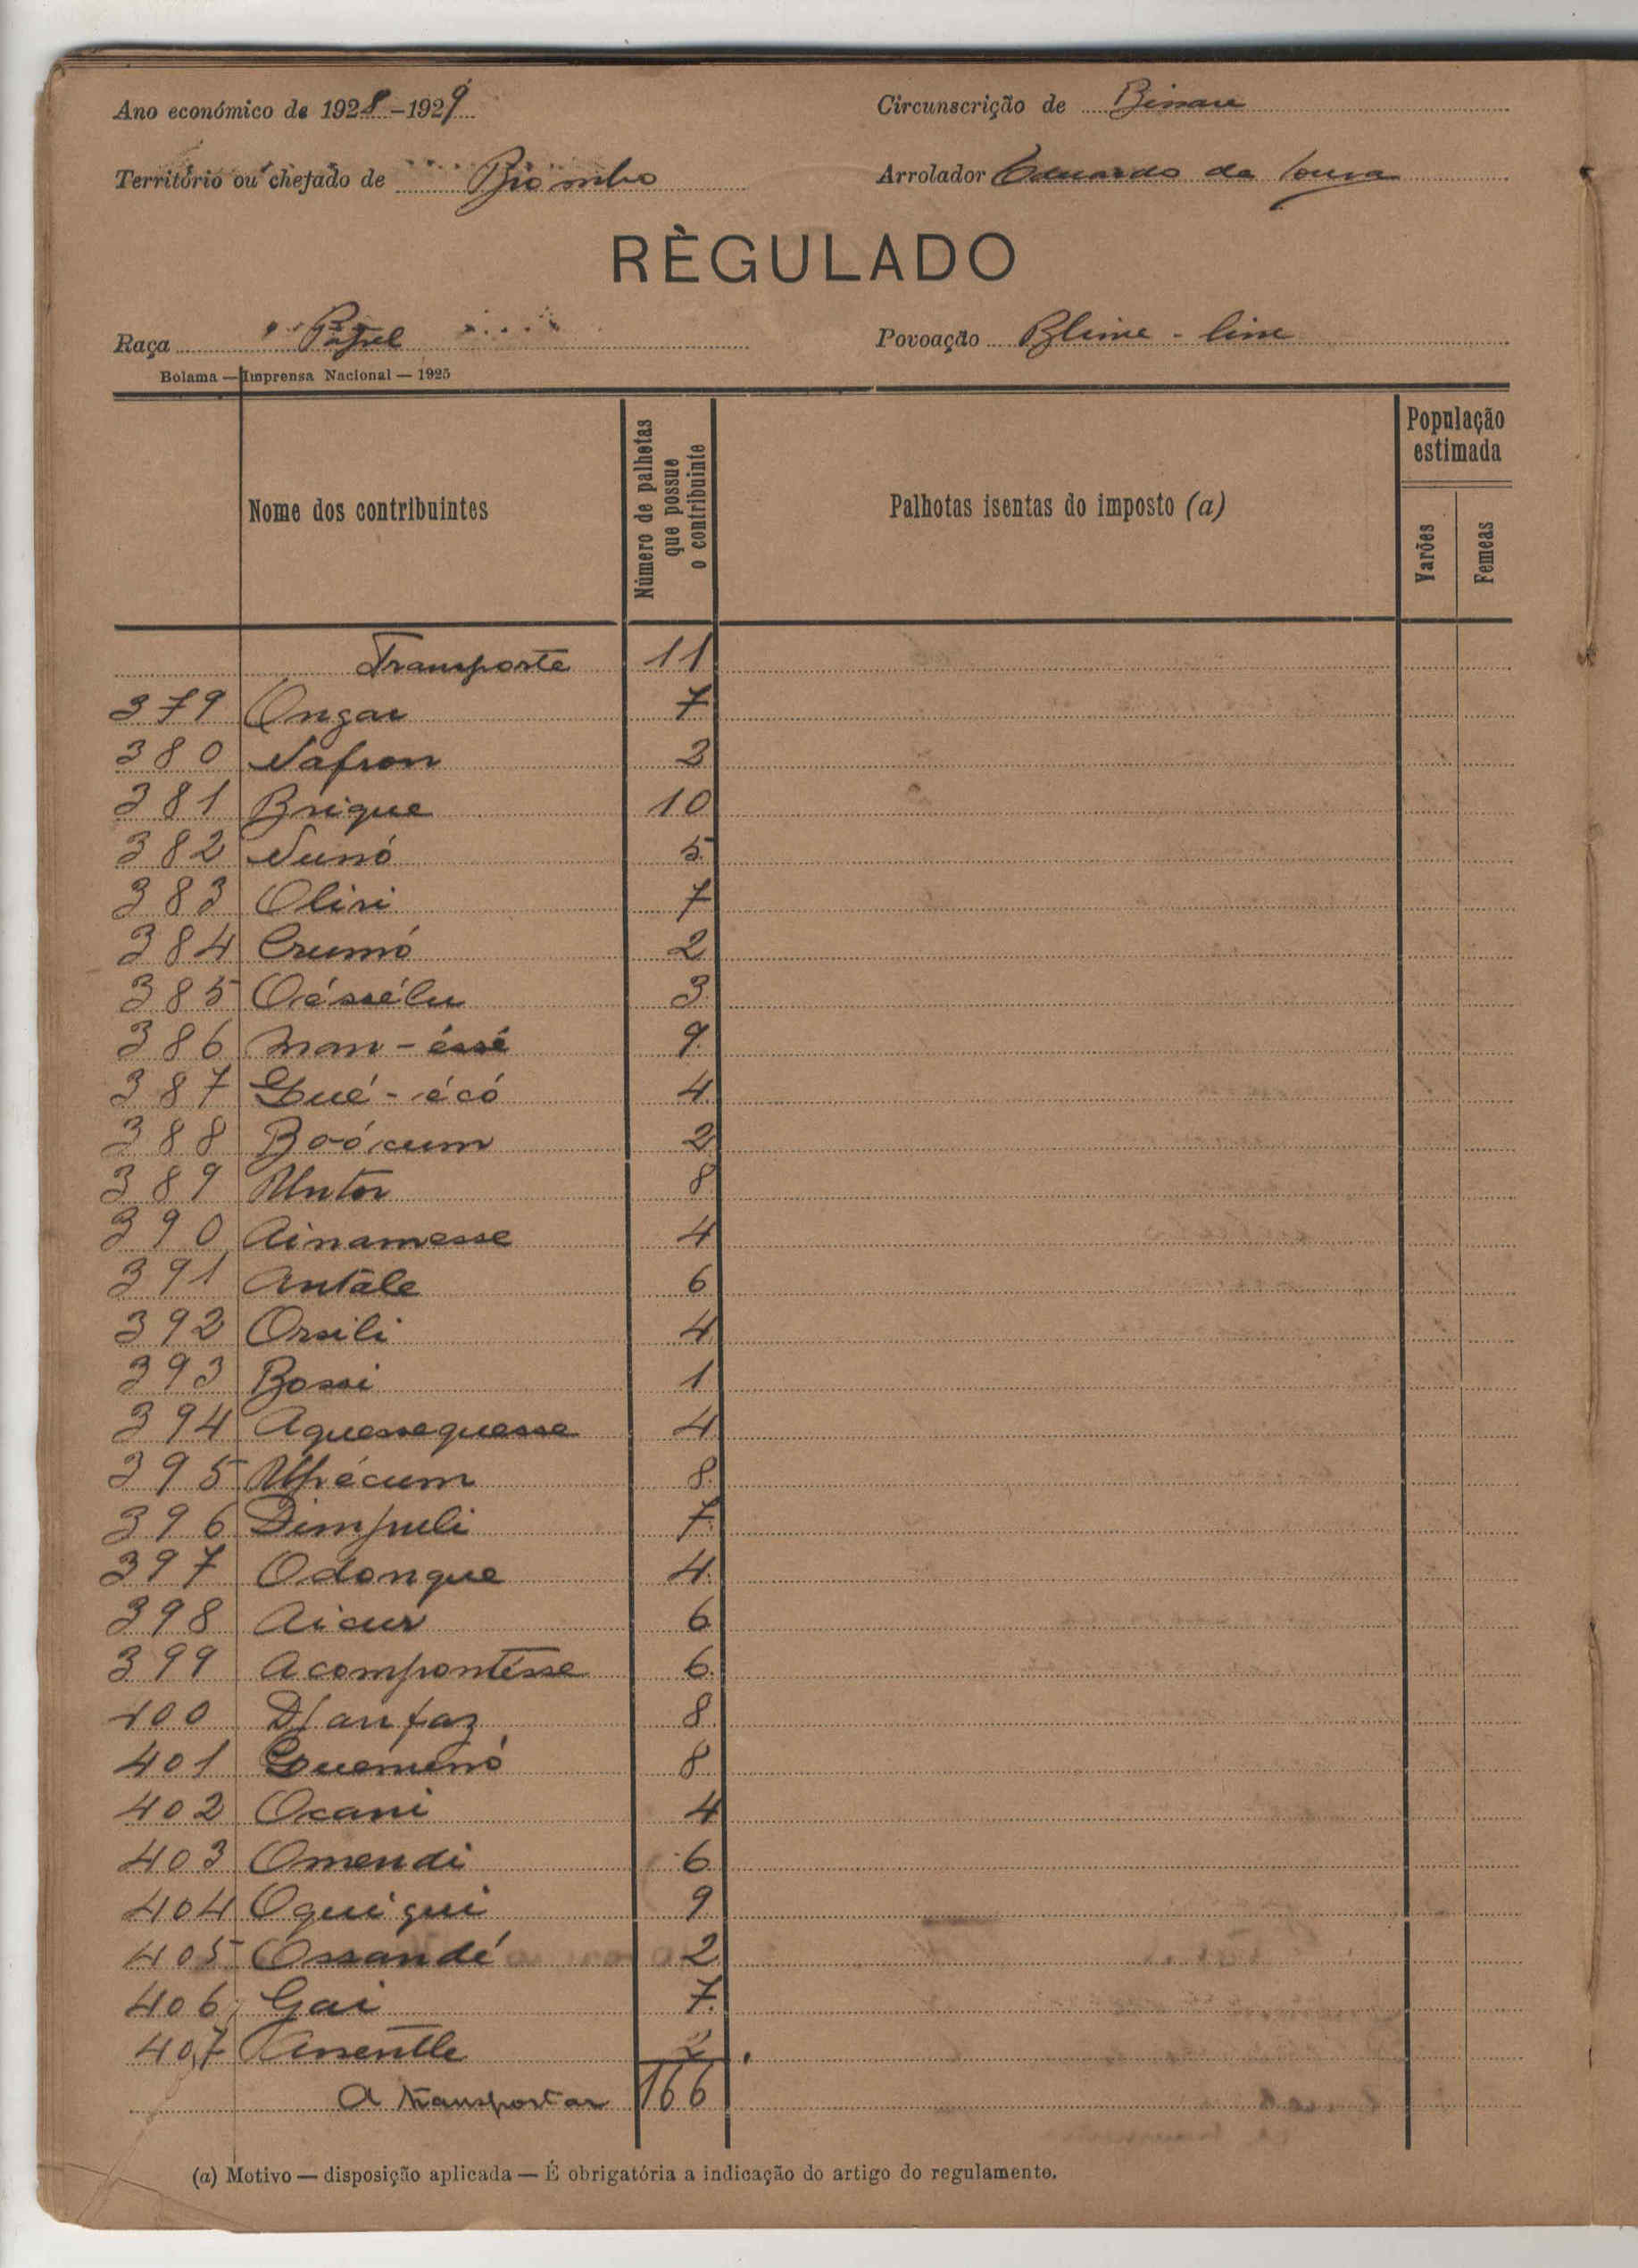 Ano económico de 1928-1929
Circunscrição de Bissau
Território ou chefado de Biombo
Arrolador Eduardo de Sousa
RÈGULADO
Raça Papel
Povoação Blime - lim
Bolama — Imprensa Nacional — 1925
Nome dos contribuintes
Número de palhotas que possue o contribuinte
Palhotas isentas do imposto (a)
População estimada
Varões
Femeas
Transporte 11
379 Ongar 7
380 Nafron 2
381 Brique 10
382 Nunó 5
383 Oliri 7
384 Crumó 2
385 Océssélu 3
386 Man - éssé 9
387 Gué - écó 4
388 Boócum 2
389 Untor 8
390 Ainamesse 4
391 Antale 6
392 Orsili 4
393 Bossi 1
394 Aquessequesse 4
395 Uhécum 8
396 Dimpuli 7
397 Odongue 4
398 Aicur 6
399 Acompontésse 6
400 Djanfaz 8
401 Guemenó 8
402 Ocani 4
403 Omendi 6
404 Oquiqui 9
405 Ossandé 2
406 Gai 7
407 2
A transportar 166
(a) Motivo — disposição aplicada — É obrigatória a indicação do artigo do regulamento.